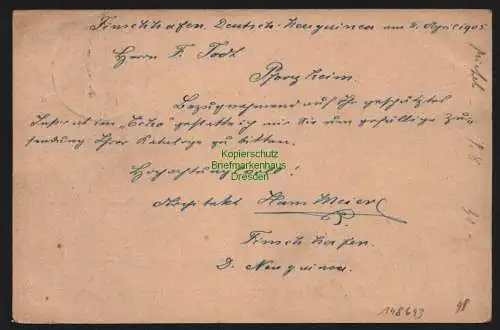 Finschhafen. Deutsch-Neuguinea am 5. April 1905
Herrn F. Todt
Pforzheim.
Bezugnehmend auf Ihr geschätztes
Inserat im "Echo" gestatte ich mir Sie um gefällige Zu-
sendung Ihrer Kataloge zu bitten.
Hochachtungsvoll!
Architekt Hans Meier
Finschhafen.
D. Neuguinea.
Kopierschutz
Briefmarkenhaus
Dresden
148693
98